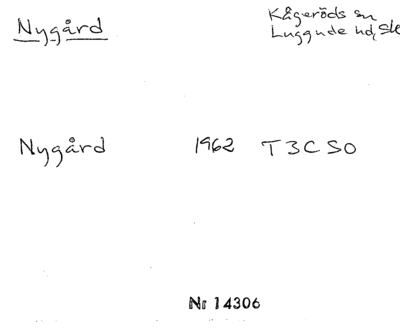 Nygård
Kågeröds sn
Luggude hd, Sk
Nygård 1962 T3C SO
Nr 14306